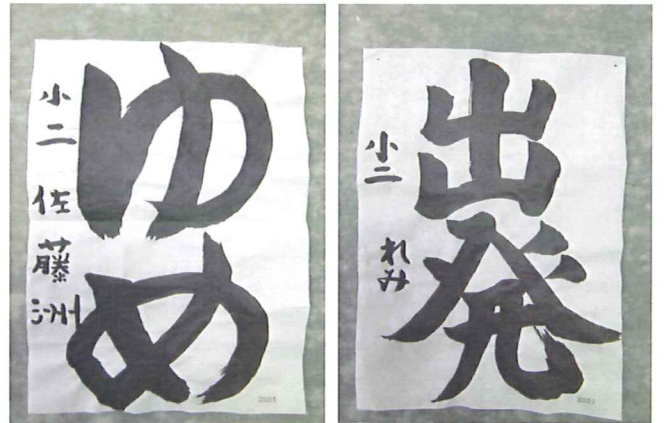 ゆめ
小二 佐藤洲
出発
小二 れみ